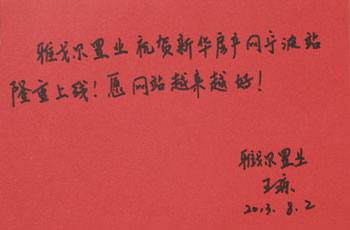 雅戈尔置业祝贺新华房产网宁波站
隆重上线！愿网站越来越好！
雅戈尔置业
王琼
2013.8.2